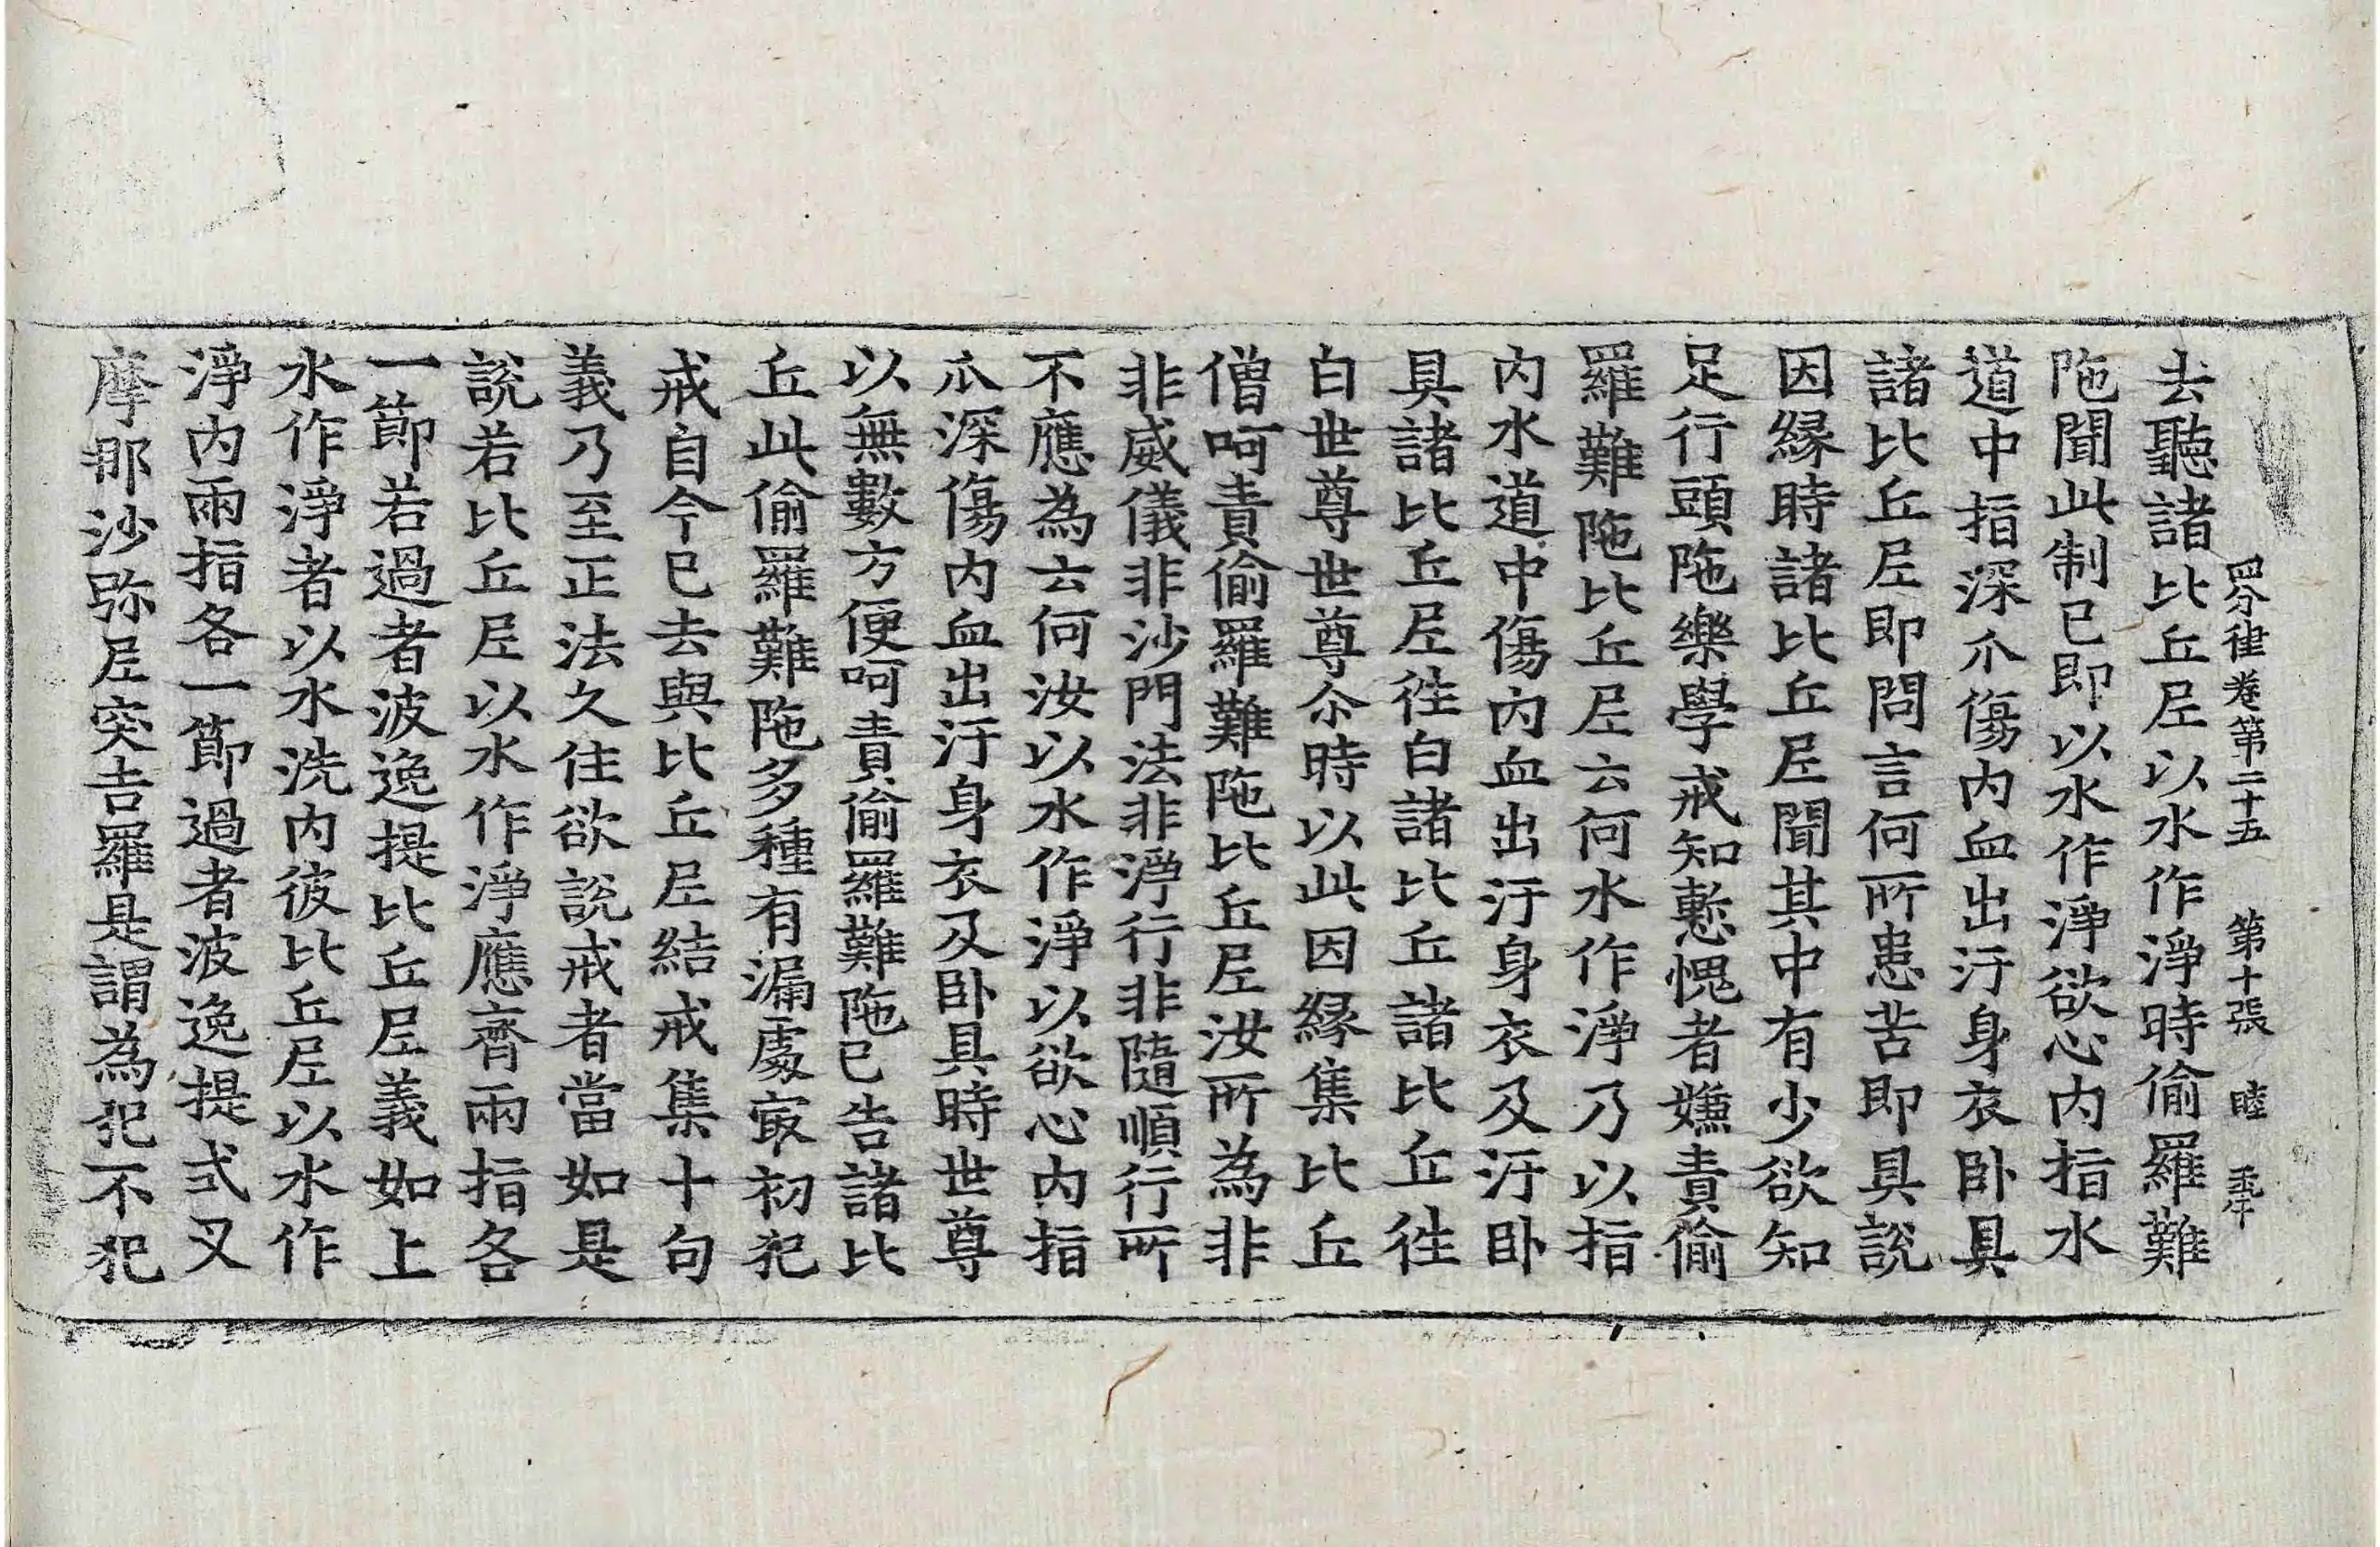 四分律卷第二十五　第十張　睦
去聽諸比丘尼以水作淨時偷羅難
陁聞此制已即以水作淨欲心內指水
道中指深爪傷內血出汙身衣卧具
諸比丘尼即問言何所患苦即具說
因縁時諸比丘尼聞其中有少欲知
足行頭陁樂學戒知慙愧者嫌責偷
羅難陁比丘尼云何水作淨乃以指
內水道中傷內血出汙身衣及汙卧
具諸比丘尼往白諸比丘諸比丘往
白世尊世尊尒時以此因縁集比丘
僧呵責偷羅難陁比丘尼汝所為非
非威儀非沙門法非淨行非隨順行所
不應為云何汝以水作淨以欲心內指
爪深傷內血出汙身衣及卧具時世尊
以無數方便呵責偷羅難陁已告諸比
丘此偷羅難陁多種有漏處㝡初犯
戒自今已去與比丘尼結戒集十句
義乃至正法久住欲說戒者當如是
說若比丘尼以水作淨應齊兩指各
一節若過者波逸提比丘尼義如上
水作淨者以水洗內彼比丘尼以水作
淨內兩指各一節過者波逸提式叉
摩那沙弥尼突吉羅是謂為犯不犯